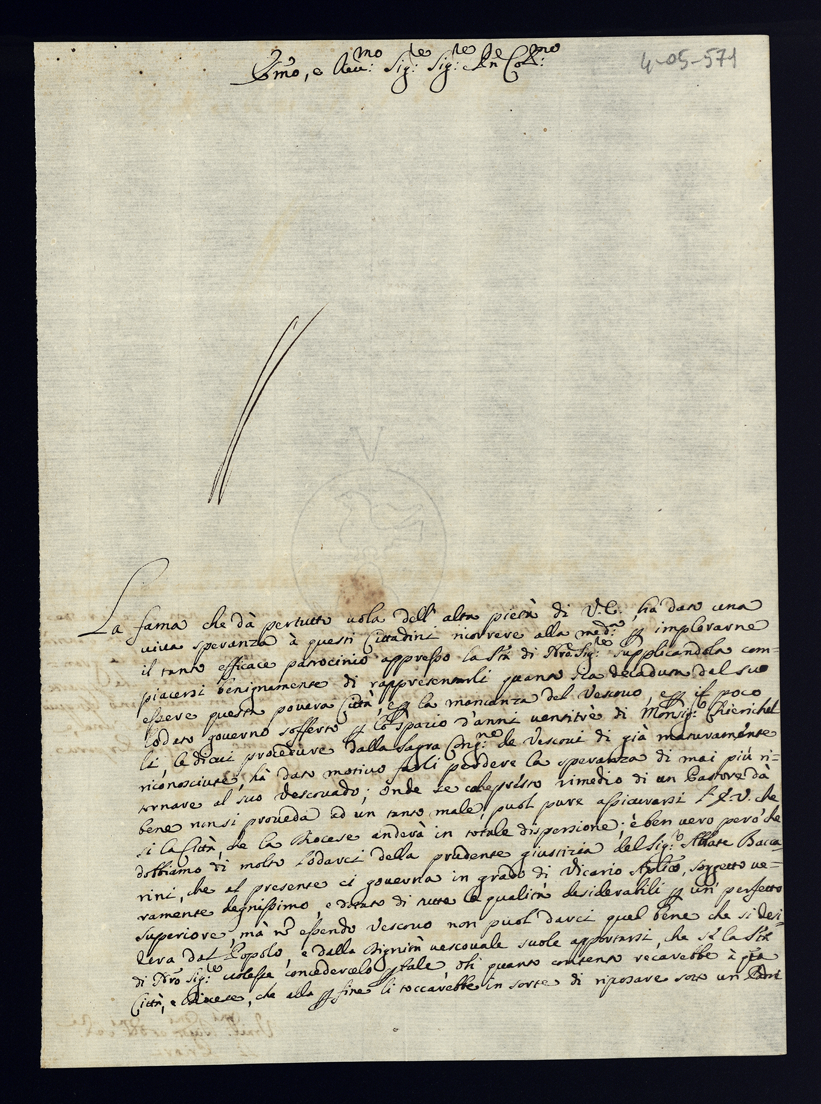 Emo, e Reu:mo Sig:re Sig:re Pne Col:mo
4-05-571
La fama che dà pertutto uola dell' alta pietà di V.E., hà dato una
uiua speranza à questi Cittadini ricorrere alla med:ma implorarne
il tanto efficace patrocinio appresso la Stà di Nro Sig:re supplicandola com=
piacersi benignamente di rappresentarli quanto sia decaduta dal suo
essere questa pouera Città, la mancanza del Vescouo, il poco
lodato gouerno sofferto lo spazio d'anni uentitrè di Monsig: Chierichel
li, le di cui procedure dalla Sagra Cong:ne de Vescoui di già maturamente
riconosciute, hà dato motiuo farli perdere la speranza di mai più ri=
tornare al suo Vescouado; onde se col presto rimedio di un Pastore dà
bene non si proueda ad un tanto male, puol pure assicurarsi l'E.V. che
si la Città, che la Diocese anderà in totale dispersione; è ben uero però che
dobbiamo di molto lodarci della prudente giustizia del Sig:r Abbate Bacca
rini, che al presente ci gouerna in grado di Vicario Aplico, soggetto ue=
ramente degnissimo, e dotato di tutte le qualità desiderabili un perfetto
superiore, mà nõ essendo Vescouo non puol darci quel bene che si desi
dera dal Popolo, e dalla dignità uescouale suole apportarsi, che se la Stà
di Nro Sig:re uolesse concedercelo tale, oh quanto contento recarebbe à qta
Città, e Diocese, che alla fine li toccarebbe in sorte di riposare sotto un